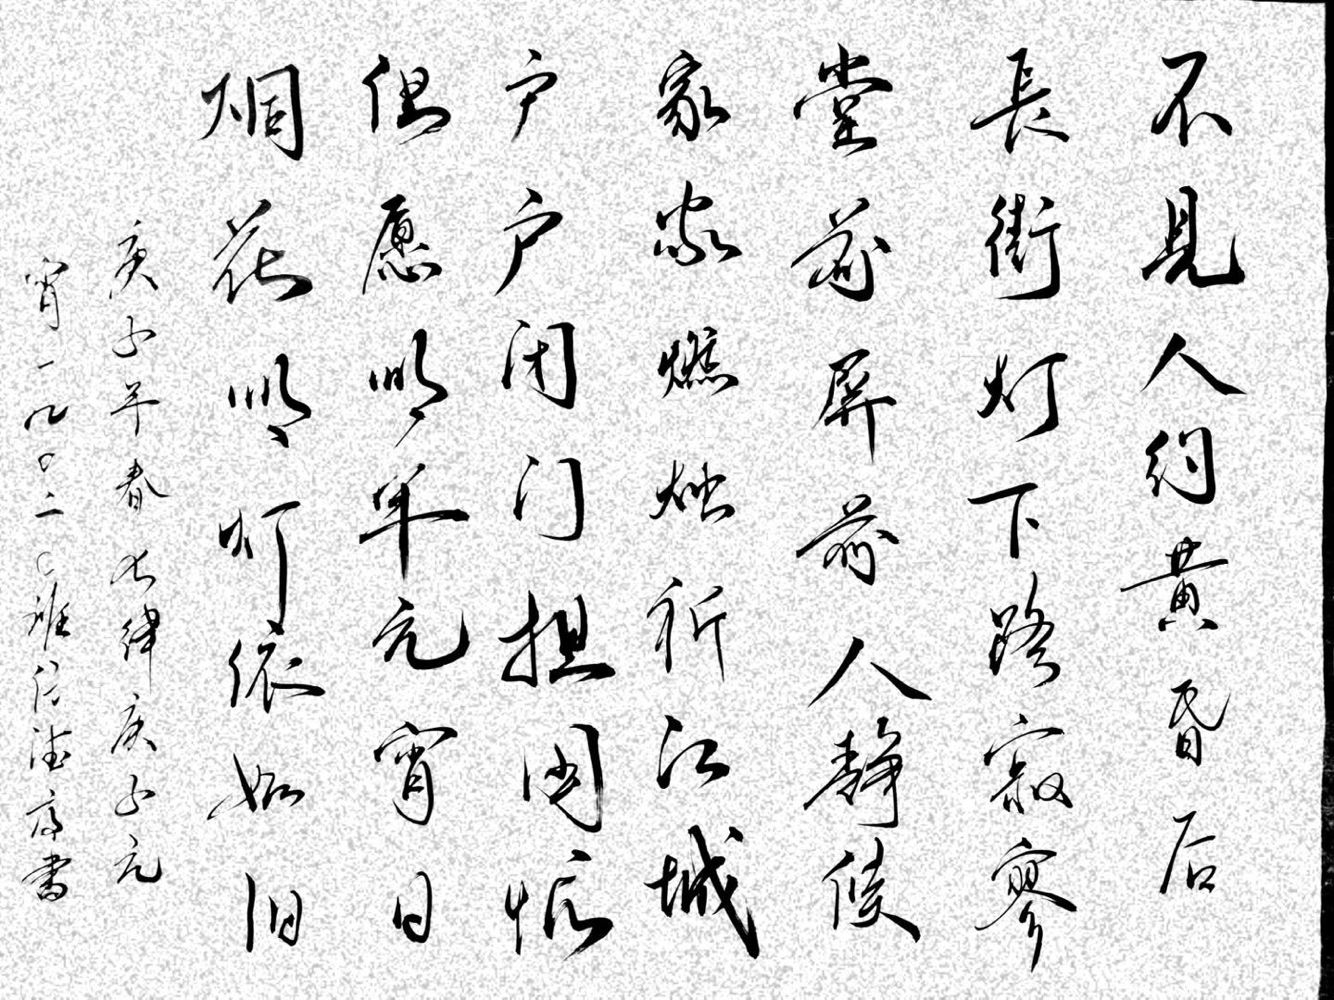 不见人约黄昏后
長街灯下路寂寥
堂前屏前人静候
家家燃烛祈江城
户户闭门担国忧
但愿明年元宵日
烟花明灯依如旧
庚子年春七律庚子元
宵一九〇二一〇班
书